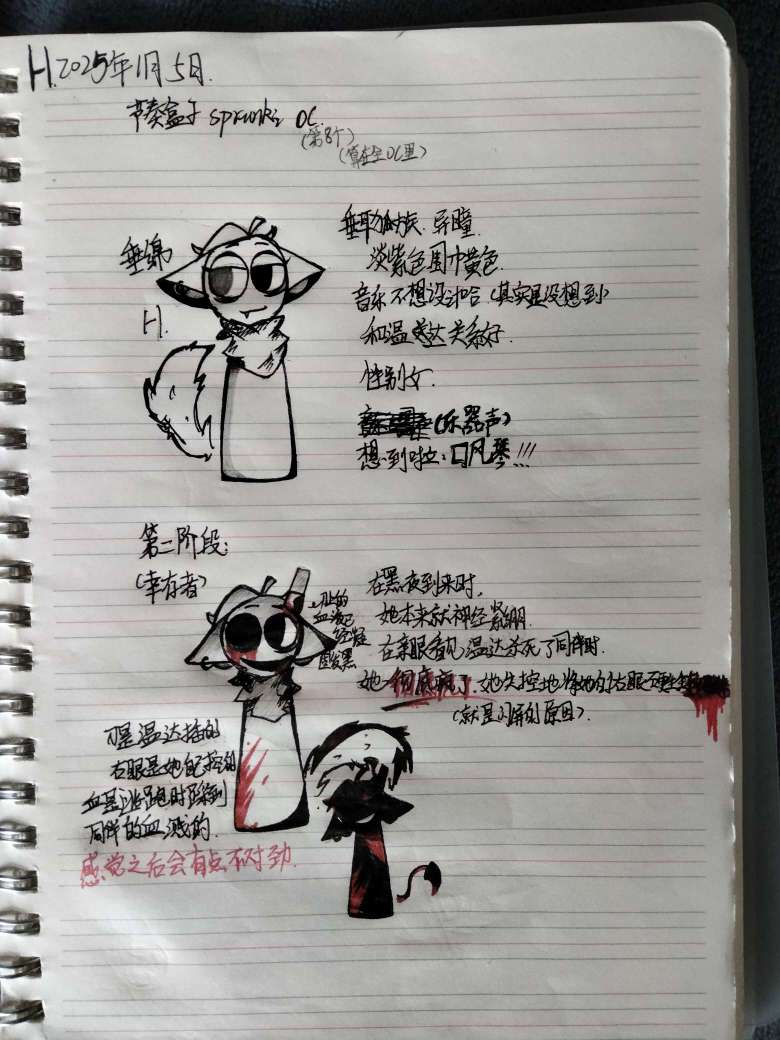 H.2025年1月5日.
节奏盒子 sprunki OC.
(第8个)
(算在全OC里)
垂绵
H.
垂耳狐族.异瞳
淡紫色围巾黄色.
音乐不想设计哈(其实是没想到)
和温达关系好.
性别女.
(乐器声)
想到啦:口风琴!!!
第二阶段:
(幸存者)
在黑夜到来时,
她本来就神经紧绷.
在亲眼看见温达杀死了同伴时.
她彻底疯了.她失控地将她的右眼
(就是闪屏的原因).
上的
血液已
经凝
固发黑
刀是温达插的
右眼是她自己挖的
血是逃跑时踩到
同伴的血溅的.
感觉之后会有点不对劲.